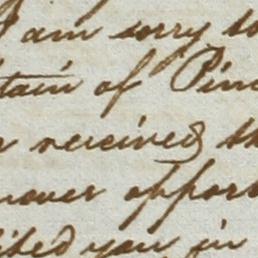 I am sorry to
tain of Pinc
received th
never opport
ited you in